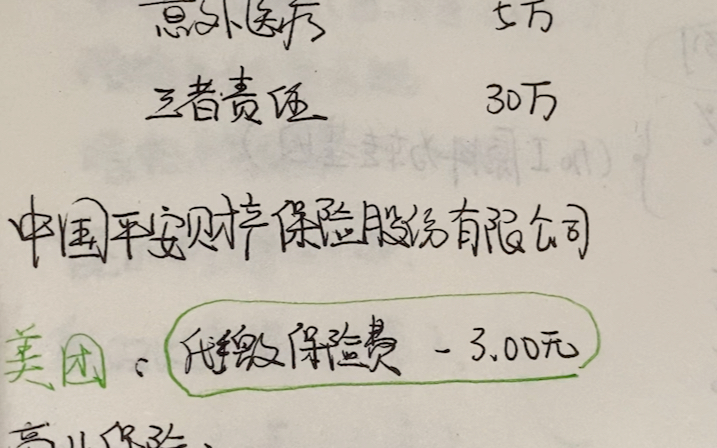 意外医疗 5万
三者责任 30万
中国平安财产保险股份有限公司
美团: 代缴保险费 -3.00元
保险: